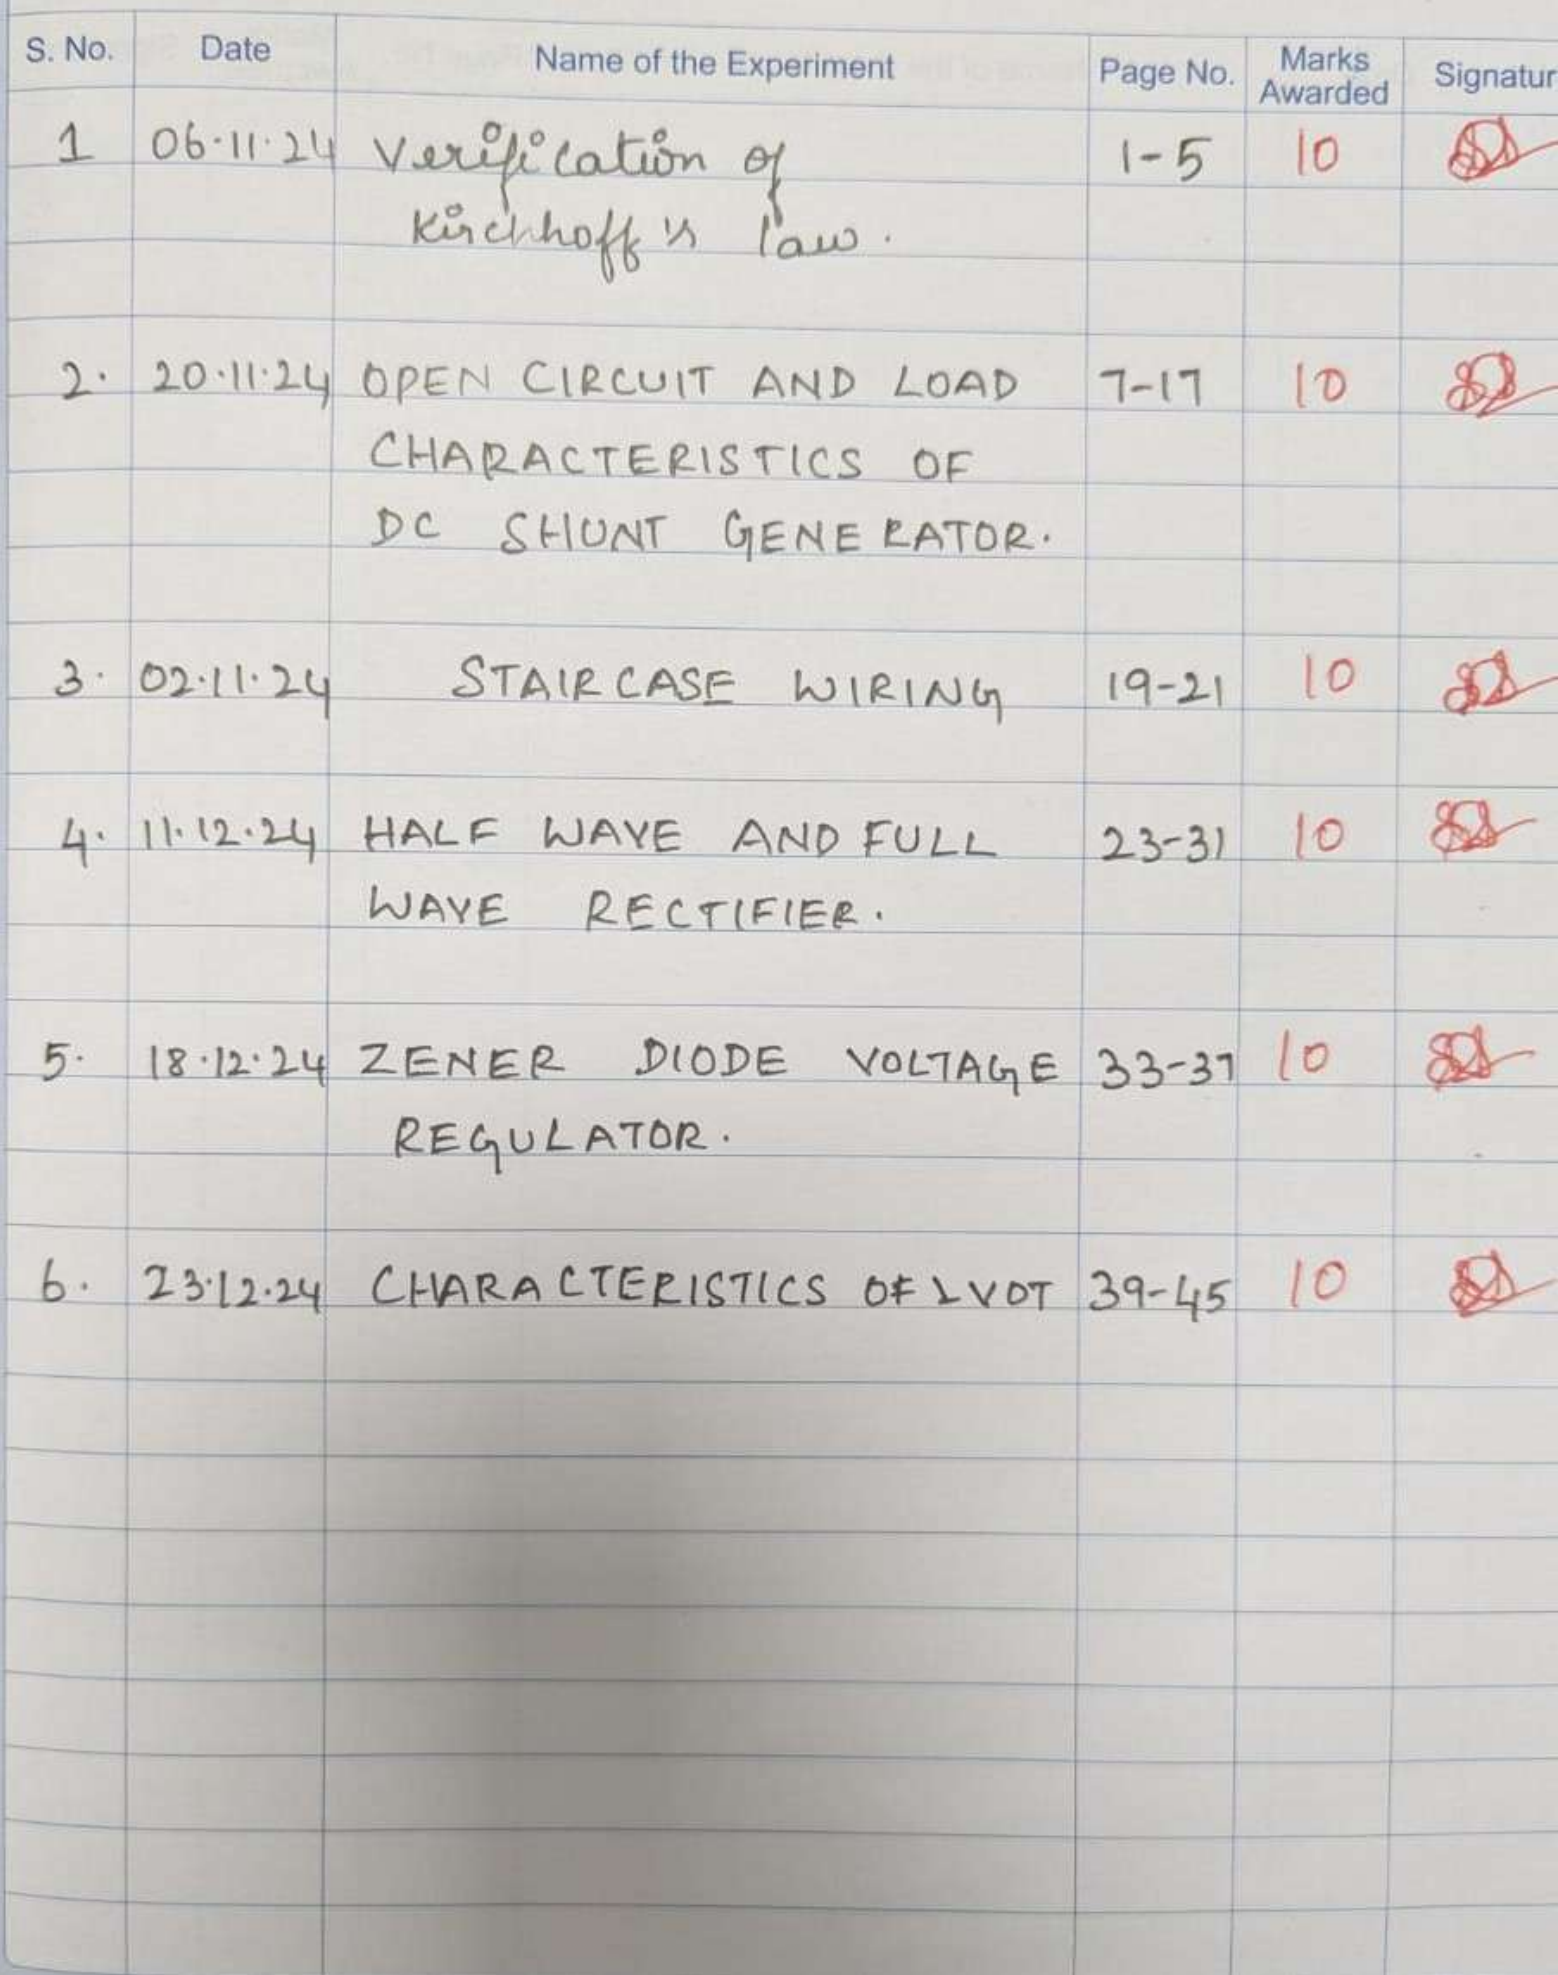 S. No. Date Name of the Experiment Page No. Marks Awarded Signatur
1 06.11.24 Verification of 1-5 10
Kirchhoff's law.
2. 20.11.24 OPEN CIRCUIT AND LOAD 7-17 10
CHARACTERISTICS OF
DC SHUNT GENERATOR.
3. 02.11.24 STAIRCASE WIRING 19-21 10
4. 11.12.24 HALF WAVE AND FULL 23-31 10
WAVE RECTIFIER.
5. 18.12.24 ZENER DIODE VOLTAGE 33-37 10
REGULATOR.
6. 23.12.24 CHARACTERISTICS OF LVDT 39-45 10